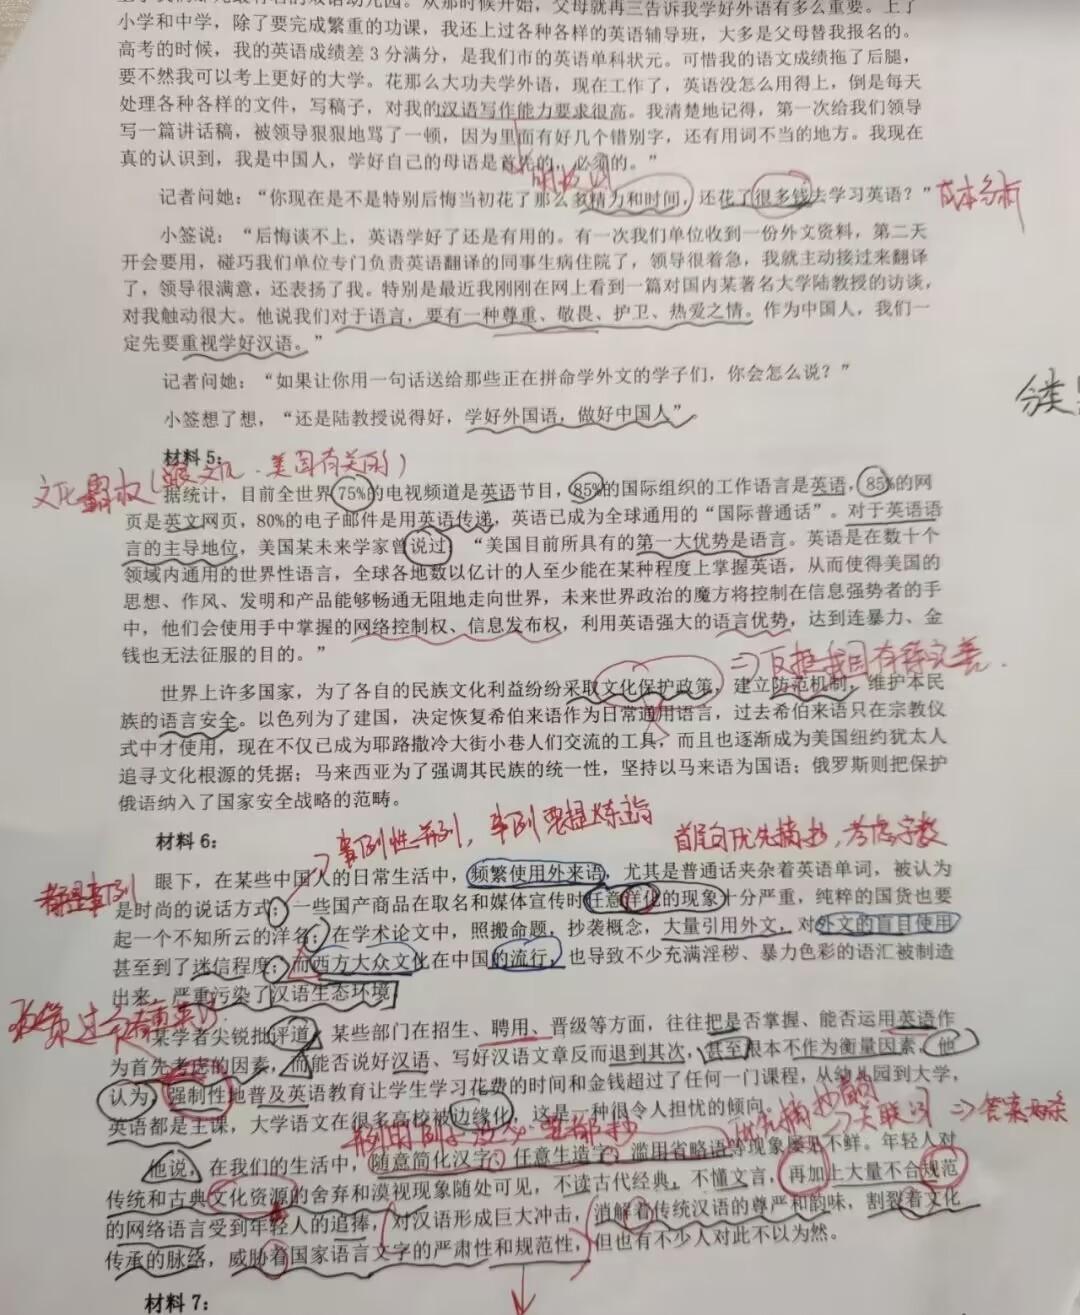 从那时候开始，父母就再三告诉我学好外语有多么重要。上了
小学和中学，除了要完成繁重的功课，我还上过各种各样的英语辅导班，大多是父母替我报名的。
高考的时候，我的英语成绩差3分满分，是我们市的英语单科状元。可惜我的语文成绩拖了后腿，
要不然我可以考上更好的大学。花那么大功夫学外语，现在工作了，英语没怎么用得上，倒是每天
处理各种各样的文件，写稿子，对我的汉语写作能力要求很高。我清楚地记得，第一次给我们领导
写一篇讲话稿，被领导狠狠地骂了一顿，因为里面有好几个错别字，还有用词不当的地方。我现在
真的认识到，我是中国人，学好自己的母语是首先的，必须的。”
记者问她：“你现在是不是特别后悔当初花了那么多精力和时间，还花了很多钱去学习英语？”
成本分析
小签说：“后悔谈不上，英语学好了还是有用的。有一次我们单位收到一份外文资料，第二天
开会要用，碰巧我们单位专门负责英语翻译的同事生病住院了，领导很着急，我就主动接过来翻译
了，领导很满意，还表扬了我。特别是最近我刚刚在网上看到一篇对国内某著名大学陆教授的访谈，
对我触动很大。他说我们对于语言，要有一种尊重、敬畏、护卫、热爱之情。作为中国人，我们一
定先要重视学好汉语。”
记者问她：“如果让你用一句话送给那些正在拼命学外文的学子们，你会怎么说？”
分类
小签想了想，“还是陆教授说得好，学好外国语，做好中国人”
材料5：
文化霸权（美国有关的）
据统计，目前全世界75%的电视频道是英语节目，85%的国际组织的工作语言是英语，85%的网
页是英文网页，80%的电子邮件是用英语传递，英语已成为全球通用的“国际普通话”。对于英语语
言的主导地位，美国某未来学家曾说过，“美国目前所具有的第一大优势是语言。英语是在数十个
领域内通用的世界性语言，全球各地数以亿计的人至少能在某种程度上掌握英语，从而使得美国的
思想、作风、发明和产品能够畅通无阻地走向世界，未来世界政治的魔方将控制在信息强势者的手
中，他们会使用手中掌握的网络控制权、信息发布权，利用英语强大的语言优势，达到连暴力、金
钱也无法征服的目的。”
⇒反推我国有待完善.
世界上许多国家，为了各自的民族文化利益纷纷采取文化保护政策，建立防范机制，维护本民
族的语言安全。以色列为了建国，决定恢复希伯来语作为日常通用语言，过去希伯来语只在宗教仪
式中才使用，现在不仅已成为耶路撒冷大街小巷人们交流的工具，而且也逐渐成为美国纽约犹太人
追寻文化根源的凭据；马来西亚为了强调其民族的统一性，坚持以马来语为国语；俄罗斯则把保护
俄语纳入了国家安全战略的范畴。
案例性并列，事例要提炼主旨
首尾句优先摘抄，考虑字数
材料6：
都是事例
眼下，在某些中国人的日常生活中，频繁使用外来语，尤其是普通话夹杂着英语单词，被认为
是时尚的说话方式；一些国产商品在取名和媒体宣传时任意洋化的现象十分严重，纯粹的国货也要
起一个不知所云的洋名；在学术论文中，照搬命题，抄袭概念，大量引用外文，对外文的盲目使用
甚至到了迷信程度；而西方大众文化在中国的流行，也导致不少充满淫秽、暴力色彩的语汇被制造
出来，严重污染了汉语生态环境。
某学者尖锐批评道，某些部门在招生、聘用、晋级等方面，往往把是否掌握、能否运用英语作
为首先考虑的因素，而能否说好汉语、写好汉语文章反而退到其次，甚至根本不作为衡量因素，他
认为，强制性地普及英语教育让学生学习花费的时间和金钱超过了任何一门课程，从幼儿园到大学，
英语都是主课，大学语文在很多高校被边缘化，这是一种很令人担忧的倾向。
他说，在我们的生活中，随意简化汉字、任意生造字、滥用省略语等现象屡见不鲜。年轻人对
传统和古典文化资源的舍弃和漠视现象随处可见，不读古代经典，不懂文言，再加上大量不合规范
的网络语言受到年轻人的追捧，对汉语形成巨大冲击，消解着传统汉语的尊严和韵味，割裂着文化
传承的脉络，威胁着国家语言文字的严肃性和规范性，但也有不少人对此不以为然。
材料7：